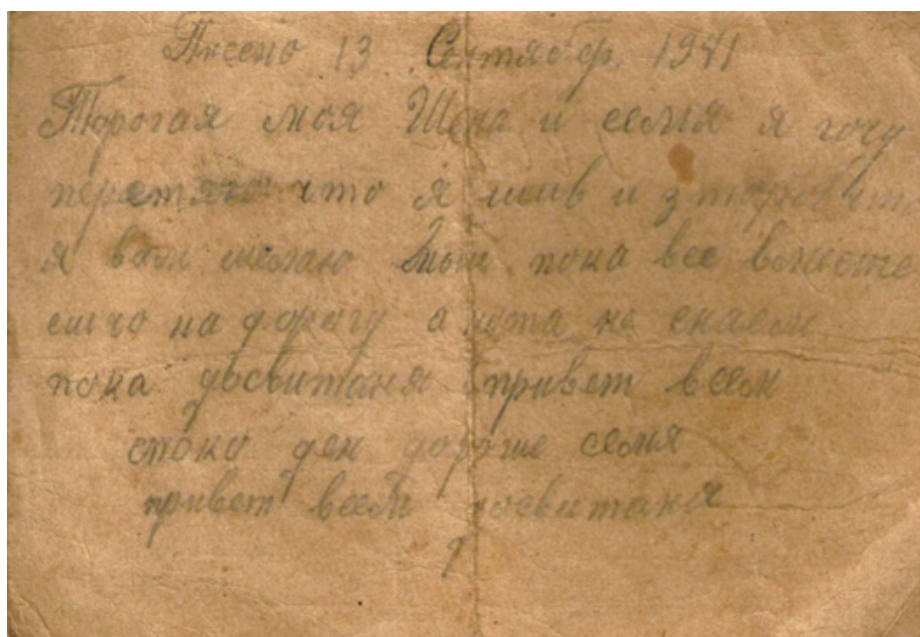 Писено 13 Сентябр. 1941
Торогая моя Шена и семия я гочу
перетяго что я шив и зторов что
я вам шелаю Мы пока все вместе
ешчо на дорогу а кута не снаем
пока досвитаня привет всем
стоко ден дорогие семя
привет всем досвитаня